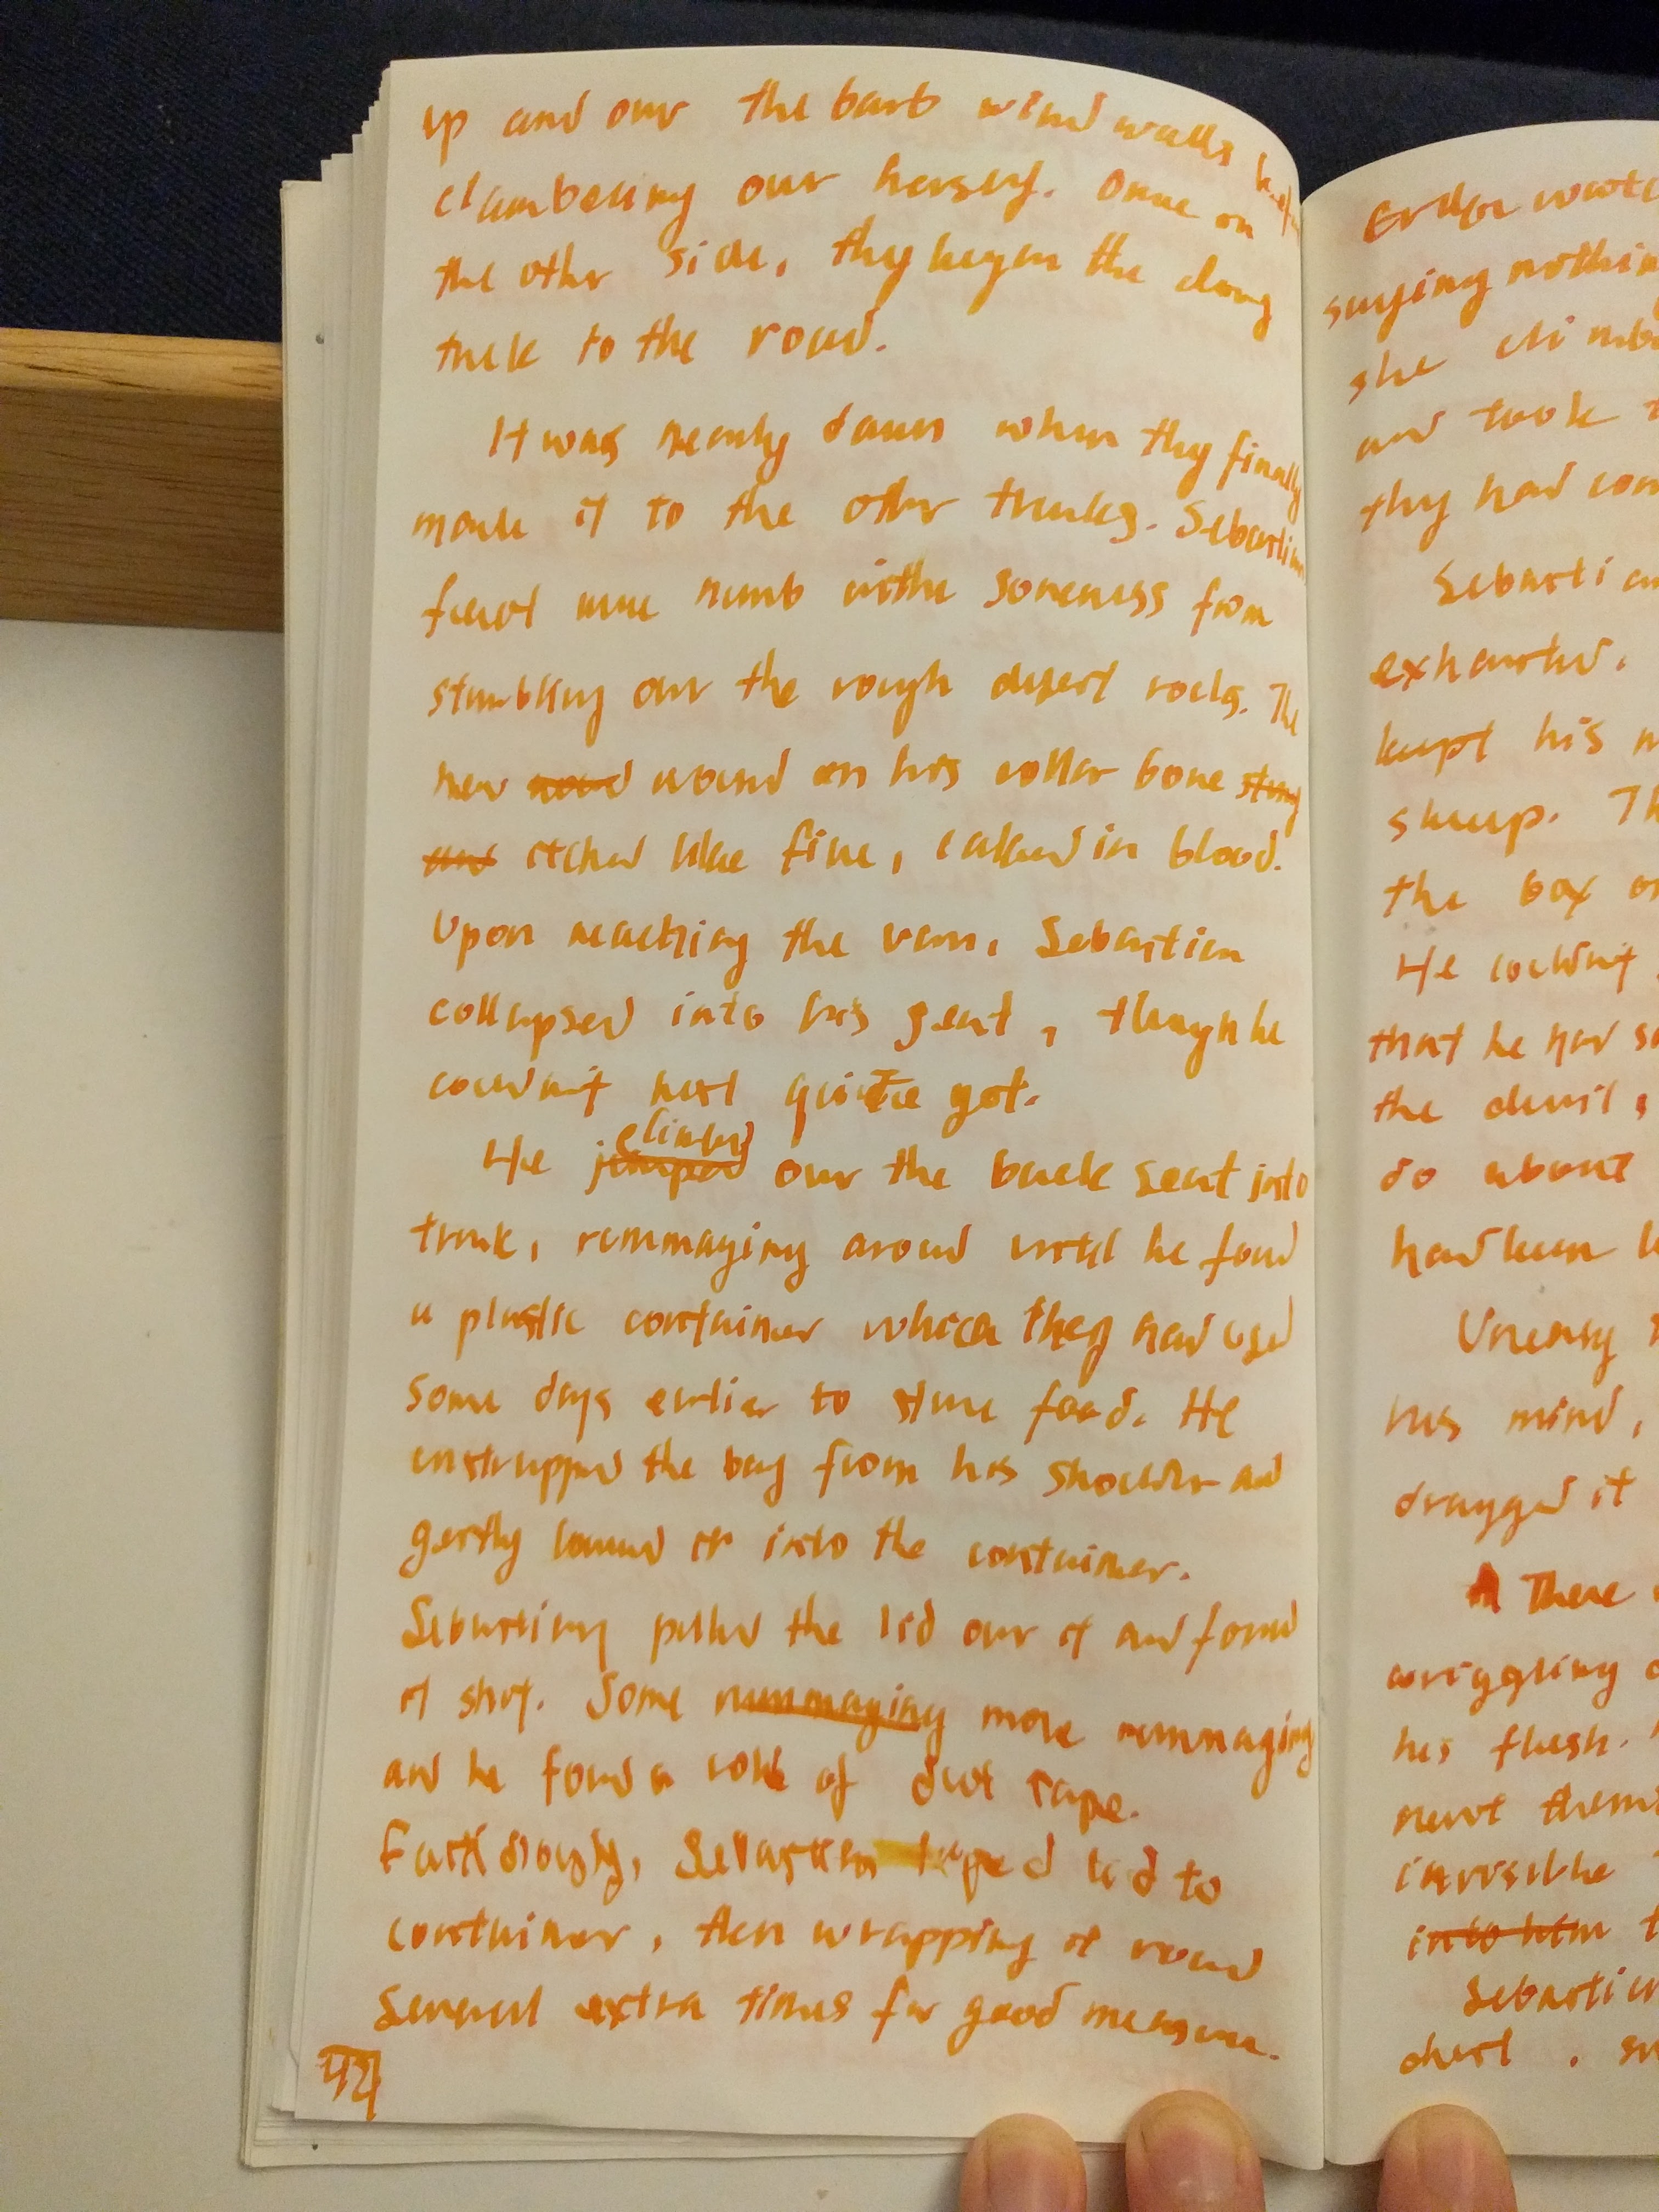 up and over the barb wired walls before
clambering over herself. Once on
the other side, they began the long
trek to the road.
It was nearly dawn when they finally
made it to the other trucks. Sebastian
feet were numb with the soreness from
stumbling over the rough desert rocks. The
new wound on his collar bone stung
and itched like fire, caked in blood.
Upon reaching the van, Sebastian
collapsed into his seat, though he
couldn't rest quite yet.
He jumped climbed over the back seat into
trunk, rummaging around until he found
a plastic container which they had used
some days earlier to store food. He
unstrapped the bag from his shoulder and
gently lowered it into the container.
Sebastian pulled the lid over it and forced
it shut. Some rummaging more rummaging
and he found a roll of duct tape.
Fastidiously, Sebastian taped lid to
container, then wrapping it round
several extra times for good measure.
42
saying nothin
she climb
and took t
they had com
Sebastian
exhausted.
kept his m
sleep. Th
the box on
He couldn't
that he had so
the devil,
do about
had been l
Uneasy
his mind,
dragged it
There
wriggling
his flesh.
next thems
invisible
into him t
Sebastian
chest